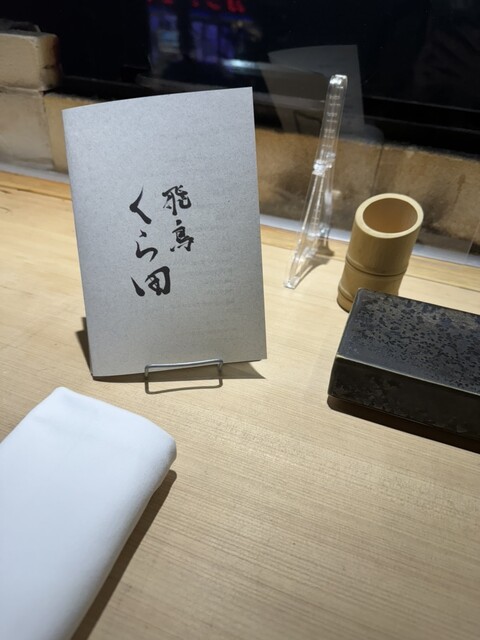 飛高
くら田